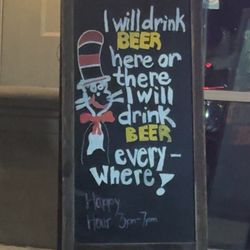 I will drink
BEER
here or
there
I will
drink
BEER
every-
where!
Happy
Hour 3pm-7pm